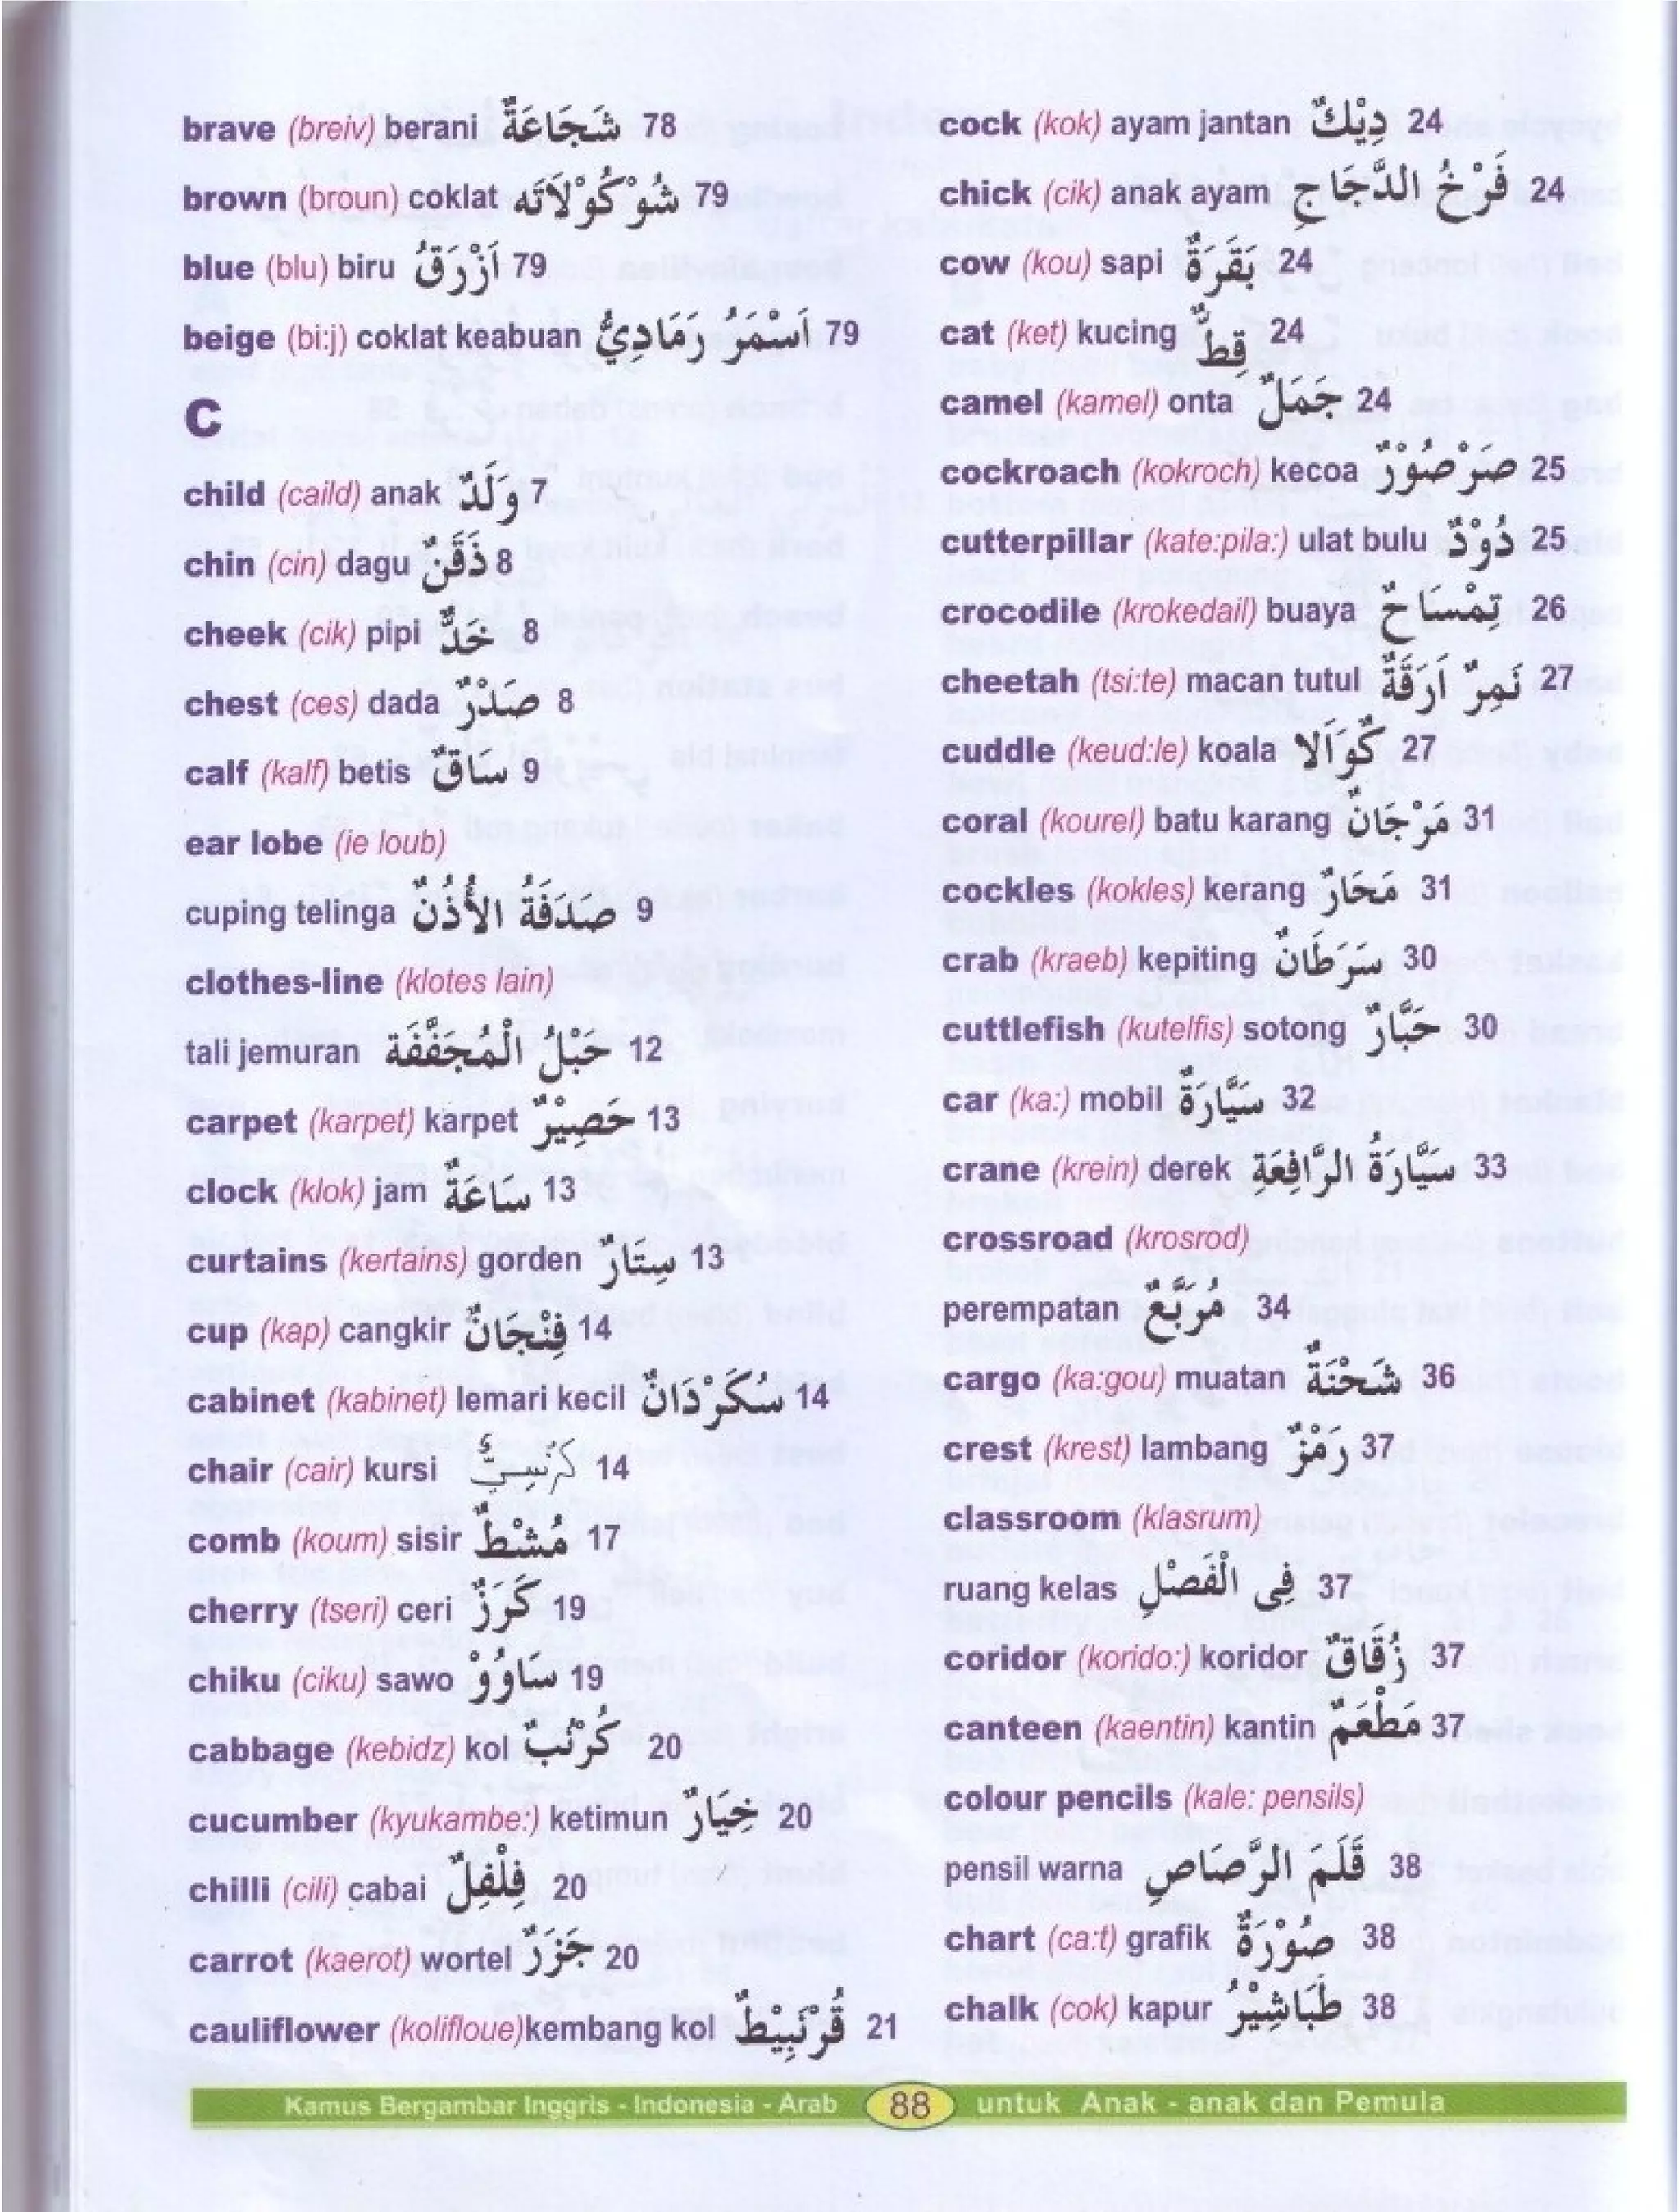 brave (breiv) berani شَجَاعَةٌ 78
brown (broun) coklat شُوْكُوْلَاتَه 79
blue (blu) biru أَزْرَقُ 79
beige (bi:j) coklat keabuan أَسْمَرُ رَمَادِيٌّ 79
C
child (caild) anak وَلَدٌ 7
chin (cin) dagu ذَقَنٌ 8
cheek (cik) pipi خَدٌّ 8
chest (ces) dada صَدْرٌ 8
calf (kalf) betis سَاقٌ 9
ear lobe (ie loub)
cuping telinga صَدَفَةُ الْأُذُنٌ 9
clothes-line (klotes lain)
tali jemuran حَبْلُ الْمُجَفَّفَة 12
carpet (karpet) karpet حَصِيْرٌ 13
clock (klok) jam سَاعَةٌ 13
curtains (kertains) gorden سِتَارٌ 13
cup (kap) cangkir فِنْجَانٌ 14
cabinet (kabinet) lemari kecil سُكَرْدَانٌ 14
chair (cair) kursi كُرْسِيٌّ 14
comb (koum) sisir مُشْطٌ 17
cherry (tseri) ceri كَرَزٌ 19
chiku (ciku) sawo سَاوُوْ 19
cabbage (kebidz) kol كُرْنُبٌ 20
cucumber (kyukambe:) ketimun خِيَارٌ 20
chilli (cili) cabai فِلْفِلٌ 20
carrot (kaerot) wortel جَزَرٌ 20
cauliflower (kolifloue)kembang kol قُرْنَبِيْطٌ 21
cock (kok) ayam jantan دِيْكٌ 24
chick (cik) anak ayam فَرْخُ الدَّجَاجِ 24
cow (kou) sapi بَقَرَةٌ 24
cat (ket) kucing قِطٌّ 24
camel (kamel) onta جَمَلٌ 24
cockroach (kokroch) kecoa صَرْصُوْرٌ 25
cutterpillar (kate:pila:) ulat bulu دُوْدٌ 25
crocodile (krokedail) buaya تِمْسَاحٌ 26
cheetah (tsi:te) macan tutul نَمِرٌ أَرَقَّةٌ 27
cuddle (keud:le) koala كُوَآلَا 27
coral (kourel) batu karang مَرْجَانٌ 31
cockles (kokles) kerang مَحَارٌ 31
crab (kraeb) kepiting سَرَطَانٌ 30
cuttlefish (kutelfis) sotong حَبَّارٌ 30
car (ka:) mobil سَيَّارَةٌ 32
crane (krein) derek سَيَّارَةُ الرَّافِعَةِ 33
crossroad (krosrod)
perempatan مُرَبَّعٌ 34
cargo (ka:gou) muatan شَحْنَةٌ 36
crest (krest) lambang رَمْزٌ 37
classroom (klasrum)
ruang kelas فِى الْفَصْلِ 37
coridor (korido:) koridor زُقَاقٌ 37
canteen (kaentin) kantin مَطْعَمٌ 37
colour pencils (kale: pensils)
pensil warna قَلَمُ الرَّصَاصِ 38
chart (ca:t) grafik صُوْرَةٌ 38
chalk (cok) kapur طَبَاشِيْرُ 38
Kamus Bergambar Inggris - Indonesia - Arab 88 untuk Anak - anak dan Pemula